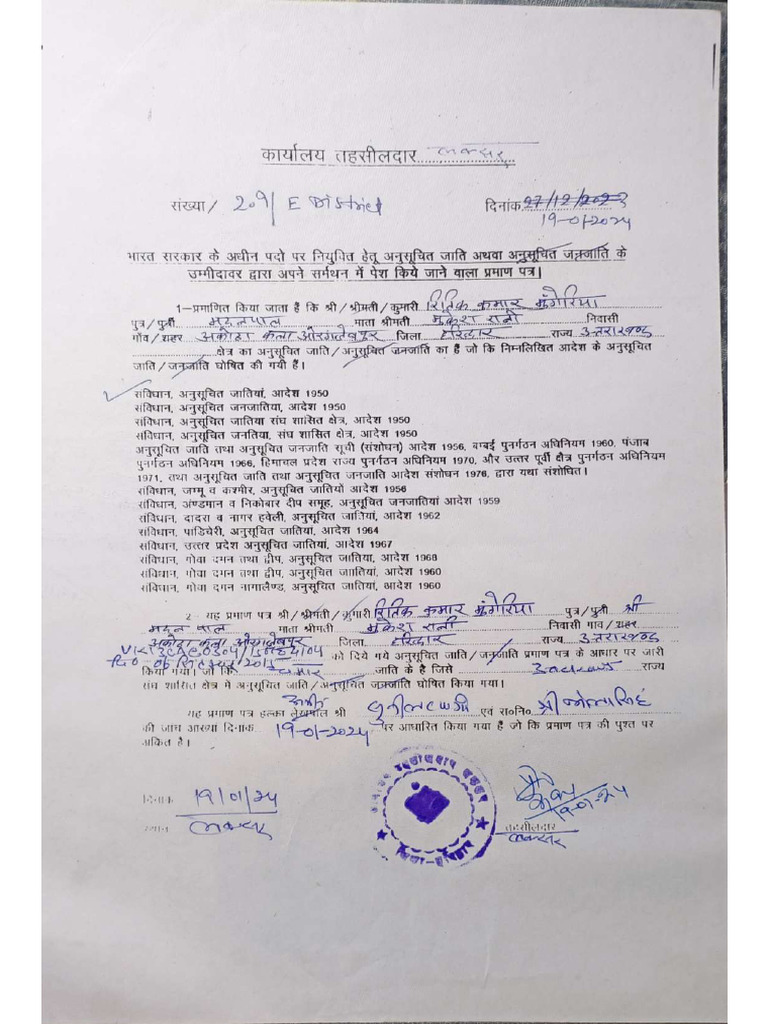 कार्यालय तहसीलदार लक्सर
संख्या / 209/ E District दिनांक 27/12/2023
19-01-2024
भारत सरकार के अधीन पदो पर नियुक्ति हेतू अनुसूचित जाति अथवा अनुसूचित जनजाति के
उम्मीदावर द्वारा अपने सर्मथन में पेश किये जाने वाला प्रमाण पत्र।
1–प्रमाणित किया जाता हैं कि श्री / श्रीमती / कुमारी रितिक कुमार मुंगेरिया
पुत्र / पुत्री मदनपाल माता श्रीमती मुकेश रानी निवासी
गॉव / शहर अकोढा कला औरंगजेबपुर जिला हरिद्वार राज्य उत्तराखण्ड
क्षेत्र का अनुसूचित जाति / अनुसूचित जनजाति का हैं जो कि निम्नलिखित आदेश के अनुसूचित
जाति / जनजाति घोषित की गयी हैं।
संविधान, अनुसूचित जातियां, आदेश 1950
संविधान, अनुसूचित जनजातिया, आदेश 1950
संविधान, अनुसूचित जातिया संघ शासित क्षेत्र, आदेश 1950
संविधान, अनुसूचित जनतिया, संघ शासित क्षेत्र, आदेश 1950
अनुसूचित जाति तथा अनुसूचित जनजाति सूची (संशोधन) आदेश 1956, बम्बई पुनर्गठन अधिनियम 1960, पंजाब
पुनर्गठन अधिनियम 1966, हिमाचल प्रदेश राज्य पुनर्गठन अधिनियम 1970, और उत्तर पूर्वी क्षेत्र पुनर्गठन अधिनियम
1971, तथा अनुसूचित जाति तथा अनुसूचित जनजाति आदेश संशोधन 1976, द्वारा यथा संशोधित।
संविधान, जम्मू व कश्मीर, अनुसूचित जातियों आदेश 1956
संविधान, अंण्डमान व निकोबार दीप समूह, अनुसूचित जनजातियां आदेश 1959
संविधान, दादरा ब नागर हवेली, अनुसूचित जातियां, आदेश 1962
संविधान, पाडिचेरी, अनुसूचित जातियां, आदेश 1964
संविधान, उत्तर प्रदेश अनुसूचित जातियां, आदेश 1967
संविधान, गोवा दमन तथा द्वीप, अनुसूचित जातियां, आदेश 1968
संविधान, गोवा दमन तथा द्वीप, अनुसूचित जातियां, आदेश 1960
संविधान, गोवा दमन नागालैण्ड, अनुसूचित जातियां, आदेश 1960
2– यह प्रमाण पत्र श्री / श्रीमती / कुमारी रितिक कुमार मुंगेरिया पुत्र / पुत्री श्री
मदन पाल माता श्रीमती मुकेश रानी निवासी गाव / शहर
अकोढा कला औरंगजेबपुर जिला हरिद्वार राज्य उत्तराखण्ड
को दिये गये अनुसूचित जाति / जनजाति प्रमाण पत्र के आधार पर जारी
किया गया। जो कि चमार जाति के है जिसे उत्तराखण्ड राज्य
संघ शासित क्षेत्र में अनुसूचित जाति / अनुसूचित जनजाति घोषित किया गया।
यह प्रमाण पत्र हल्का लेखपाल श्री एवं रा०नि० श्री
की जांच आख्या दिनांक 19-01-2024 पर आधारित किया गया हैं जो कि प्रमाण पत्र की पुश्त पर
अंकित है।
दिनांक 19/01/24 19-01-24
स्थान लक्सर तहसीलदार
लक्सर